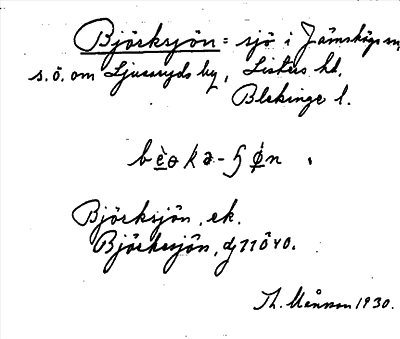 Björksjön = sjö i Jämshögs sn,
s. ö. om Ljusaryds by, Listers hd.
Blekinge l.
Björksjön, ek.
Björkesjön,
Th. Månsson 1930.